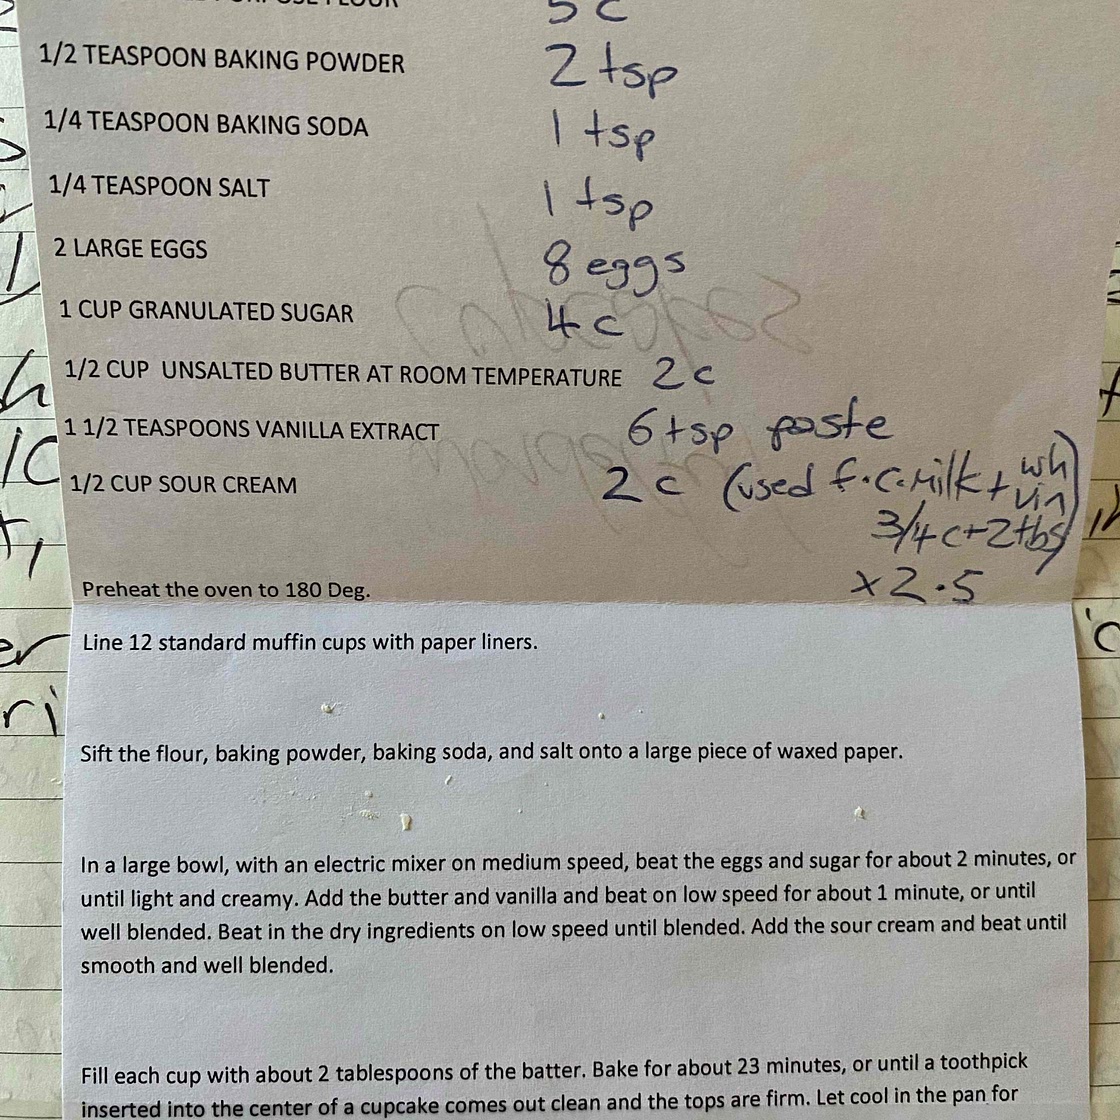 5 c
1/2 TEASPOON BAKING POWDER 2 tsp
1/4 TEASPOON BAKING SODA 1 tsp
1/4 TEASPOON SALT 1 tsp
2 LARGE EGGS 8 eggs
1 CUP GRANULATED SUGAR 4 c
1/2 CUP UNSALTED BUTTER AT ROOM TEMPERATURE 2 c
1 1/2 TEASPOONS VANILLA EXTRACT 6 tsp paste
1/2 CUP SOUR CREAM 2 c (used f.c.milk + wh vin)
3/4 c + 2 tbs
x 2.5
Preheat the oven to 180 Deg.
Line 12 standard muffin cups with paper liners.
Sift the flour, baking powder, baking soda, and salt onto a large piece of waxed paper.
In a large bowl, with an electric mixer on medium speed, beat the eggs and sugar for about 2 minutes, or
until light and creamy. Add the butter and vanilla and beat on low speed for about 1 minute, or until
well blended. Beat in the dry ingredients on low speed until blended. Add the sour cream and beat until
smooth and well blended.
Fill each cup with about 2 tablespoons of the batter. Bake for about 23 minutes, or until a toothpick
inserted into the center of a cupcake comes out clean and the tops are firm. Let cool in the pan for